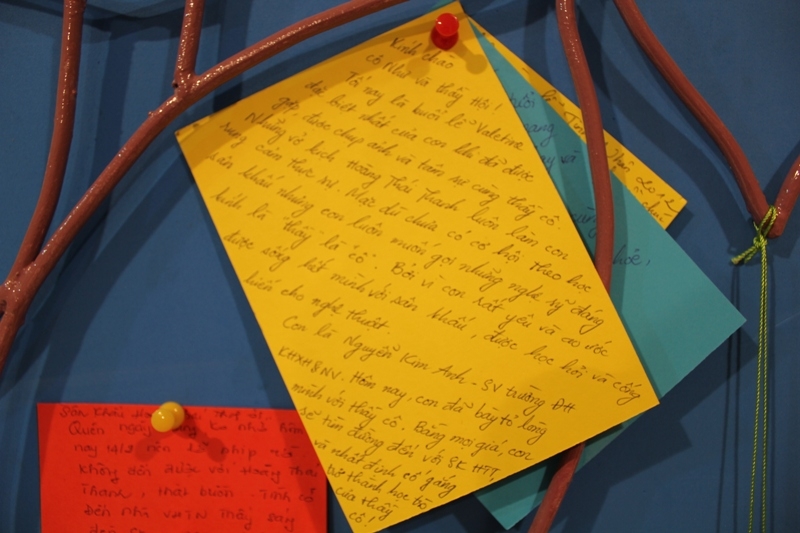 Kính chào
cô Như và thầy Hội!
Tối nay là buổi lễ Valetine
đặc biệt nhất của con khi đã được
gặp, được chụp ảnh và tâm sự cùng thầy cô.
Những vở kịch Hoàng Thái Thanh luôn làm con
rung cảm thực sự. Mặc dù chưa có cơ hội theo học
sân khấu nhưng con luôn muốn gọi những nghệ sỹ đáng
kính là "thầy" là "cô". Bởi vì con rất yêu và ao ước
được sống hết mình với sân khấu, được học hỏi và cống
hiến cho nghệ thuật.
Con là Nguyễn Kim Anh - SV trường ĐH
KHXH&NV. Hôm nay, con đã bày tỏ lòng
mình với thầy cô. Bằng mọi giá, con
sẽ tìm đường đến với SK HTT
và nhất định cố gắng
trở thành học trò
của thầy
cô!
2012
hỏe,
Sân Khấu
Quên ngày
nay 14/2 nên
không đến được với Hoàng Thái
Thanh, thật buồn. Tình cờ
đến nhà VHTN thấy